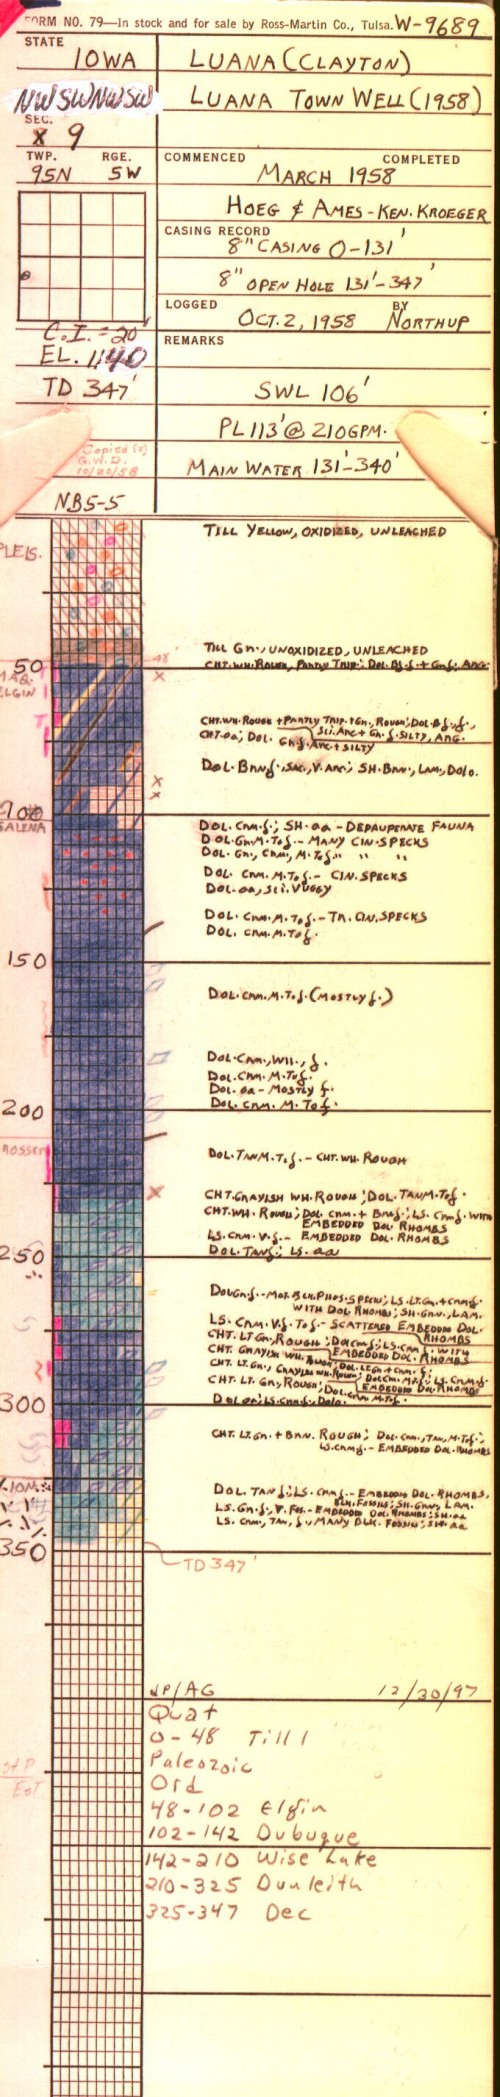 FORM NO. 79—In stock and for sale by Ross-Martin Co., Tulsa. W-9689
STATE
IOWA
LUANA (CLAYTON)
NW SW NW SW
LUANA TOWN WELL (1958)
SEC.
9
TWP. RGE.
95N 5W
COMMENCED COMPLETED
MARCH 1958
HOEG & AMES - KEN. KROEGER
CASING RECORD
8" CASING 0-131'
8" OPEN HOLE 131'-347'
LOGGED BY
OCT. 2, 1958 NORTHUP
C.I. = 20'
EL. 1140
TD 347'
REMARKS
SWL 106'
PL 113' @ 210 GPM.
Copied (2)
G.W.D.
10/20/58
MAIN WATER 131'-340'
NB5-5
PLEIS.
TILL YELLOW, OXIDIZED, UNLEACHED
TILL GN., UNOXIDIZED, UNLEACHED
48'
50
CHT. WH. ROUGH, PARTLY TRIP.; DOL. BJ. f. + GN. f. ARG.
MAQ.
ELGIN
CHT. WH. ROUGH + PARTLY TRIP. + GN., ROUGH; DOL. BJ. f.,
SLI. ARG. + GN. f. SILTY, ARG.
CHT. aa; DOL. GN. f. ARG. + SILTY
DOL. BRN f., SAC., V. ARG.; SH. BRN., LAM., DOLO.
100
GALENA
DOL. CRM. f.; SH. aa - DEPAUPERATE FAUNA
DOL. GN. M. TO f. - MANY CIN. SPECKS
DOL. GN., CRM., M. TO f. " " "
DOL. CRM. M. TO f. - CIN. SPECKS
DOL. aa, SLI. VUGGY
DOL. CRM. M. TO f. - TR. CIN. SPECKS
DOL. CRM. M. TO f.
150
DOL. CRM. M. TO f. (MOSTLY f.)
DOL. CRM., WH., f.
DOL. CRM. M. TO f.
DOL. aa - MOSTLY f.
DOL. CRM. M. TO f.
200
PROSSER
DOL. TAN M. TO f. - CHT. WH. ROUGH
CHT. GRAYISH WH. ROUGH; DOL. TAN M. TO f.
CHT. WH. ROUGH; DOL. CRM. + BRN f.; LS. CRM f. WITH
EMBEDDED DOL. RHOMBS
LS. CRM. V. f. - EMBEDDED DOL. RHOMBS
DOL. TAN f.; LS. aa
250
WITH DOL RHOMBS; SH. GRN., LAM.
LS. CRM. V. f. TO f. - SCATTERED EMBEDDED DOL.
RHOMBS
CHT. LT. GN., ROUGH; DOL CRM f.; LS. CRM f. WITH
EMBEDDED DOL. RHOMBS
CHT. GRAYISH WH. ROUGH; DOL. LT. GN + CRM. f.;
CHT. LT. GN., GRAYISH WH. ROUGH; DOL CRM. M. TO f.; LS. CRM f.
EMBEDDED DOL. RHOMBS
CHT. LT. GN., ROUGH; DOL. CRM. M. TO f.
300
DOL. aa; LS. CRM. f., DOLO.
CHT. LT. GN. + BRN. ROUGH; DOL. CRM., TAN, M. TO f.;
LS. CRM f. - EMBEDDED DOL. RHOMBS
DOL. TAN f.; LS. CRM f. - EMBEDDED DOL. RHOMBS,
BLK. FOSSILS; SH. GRN., LAM.
LS. GN. f., V. FOS. - EMBEDDED DOL. RHOMBS; SH. aa
LS. CRM., TAN, f., MANY BLK. FOSSILS; SH. aa
350
TD 347'
JP/AG 12/30/97
Quat
0-48 Till
Paleozoic
Ord
48-102 Elgin
102-142 Dubuque
142-210 Wise Lake
210-325 Dunleith
325-347 Dec